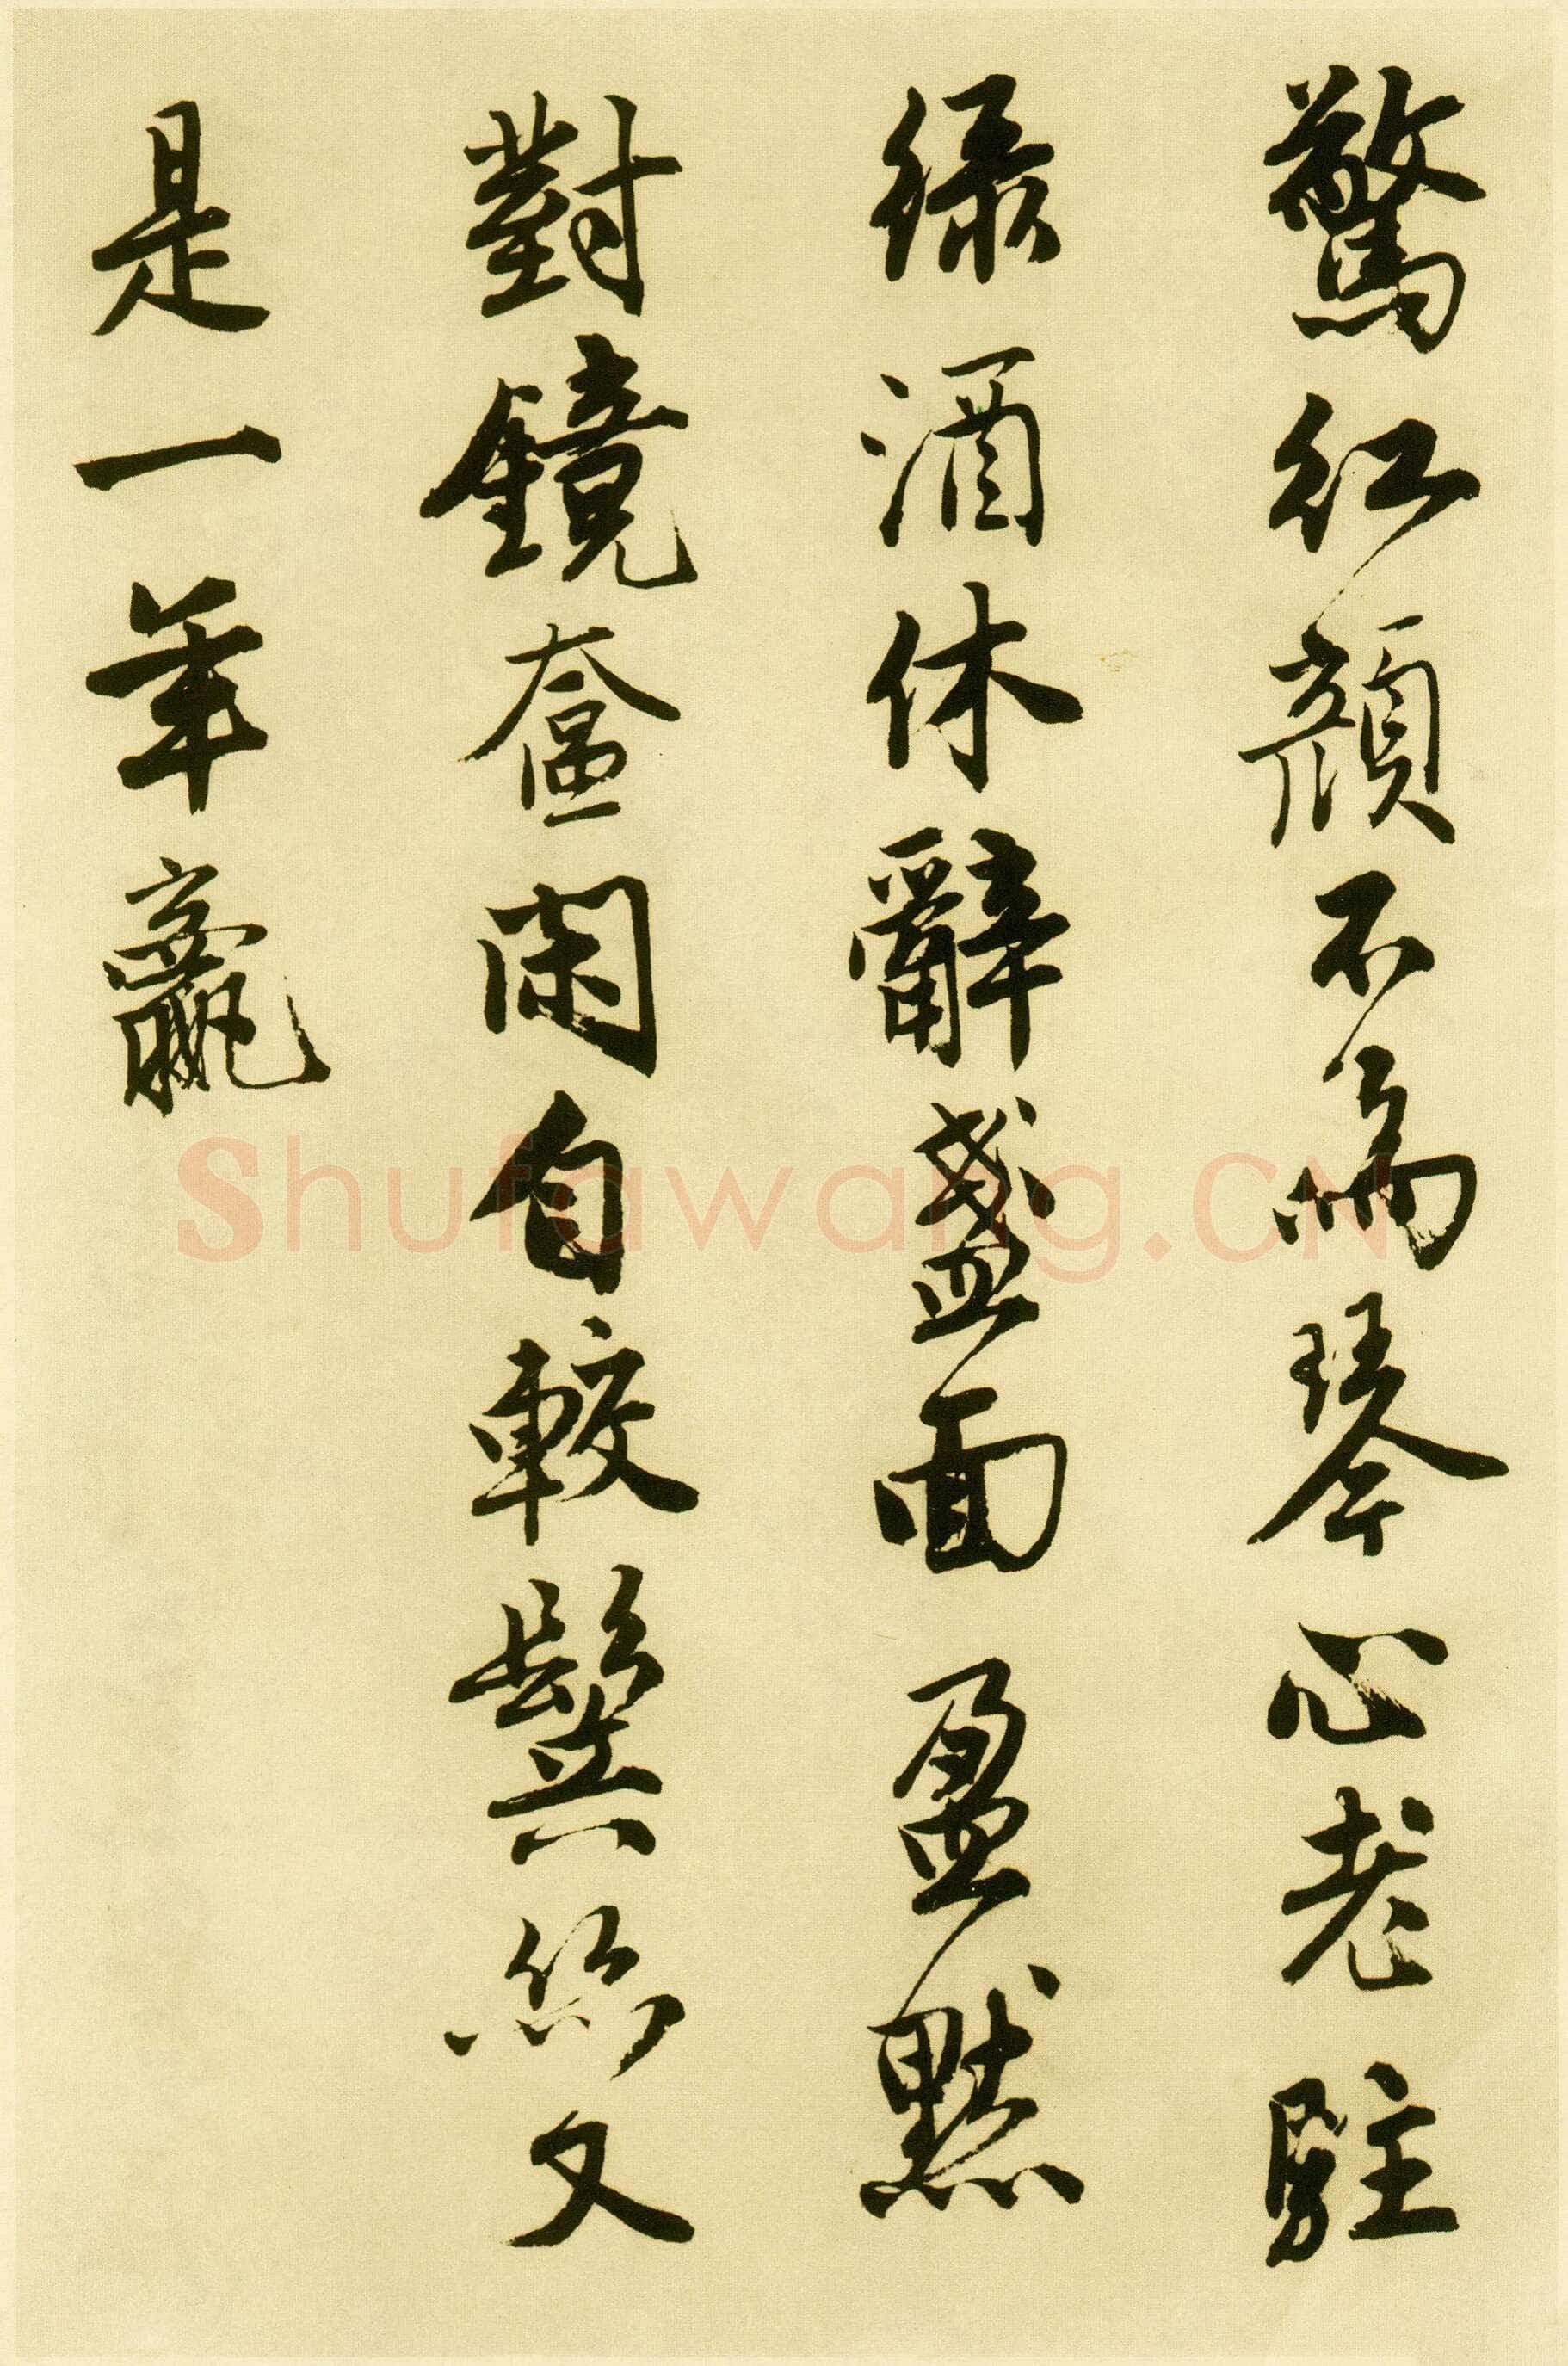 驚紅顔不為琴心老駐
緑酒休辭盞面盈默
對鏡奩閑自較鬢絲又
是一年贏
Shufawang.CN